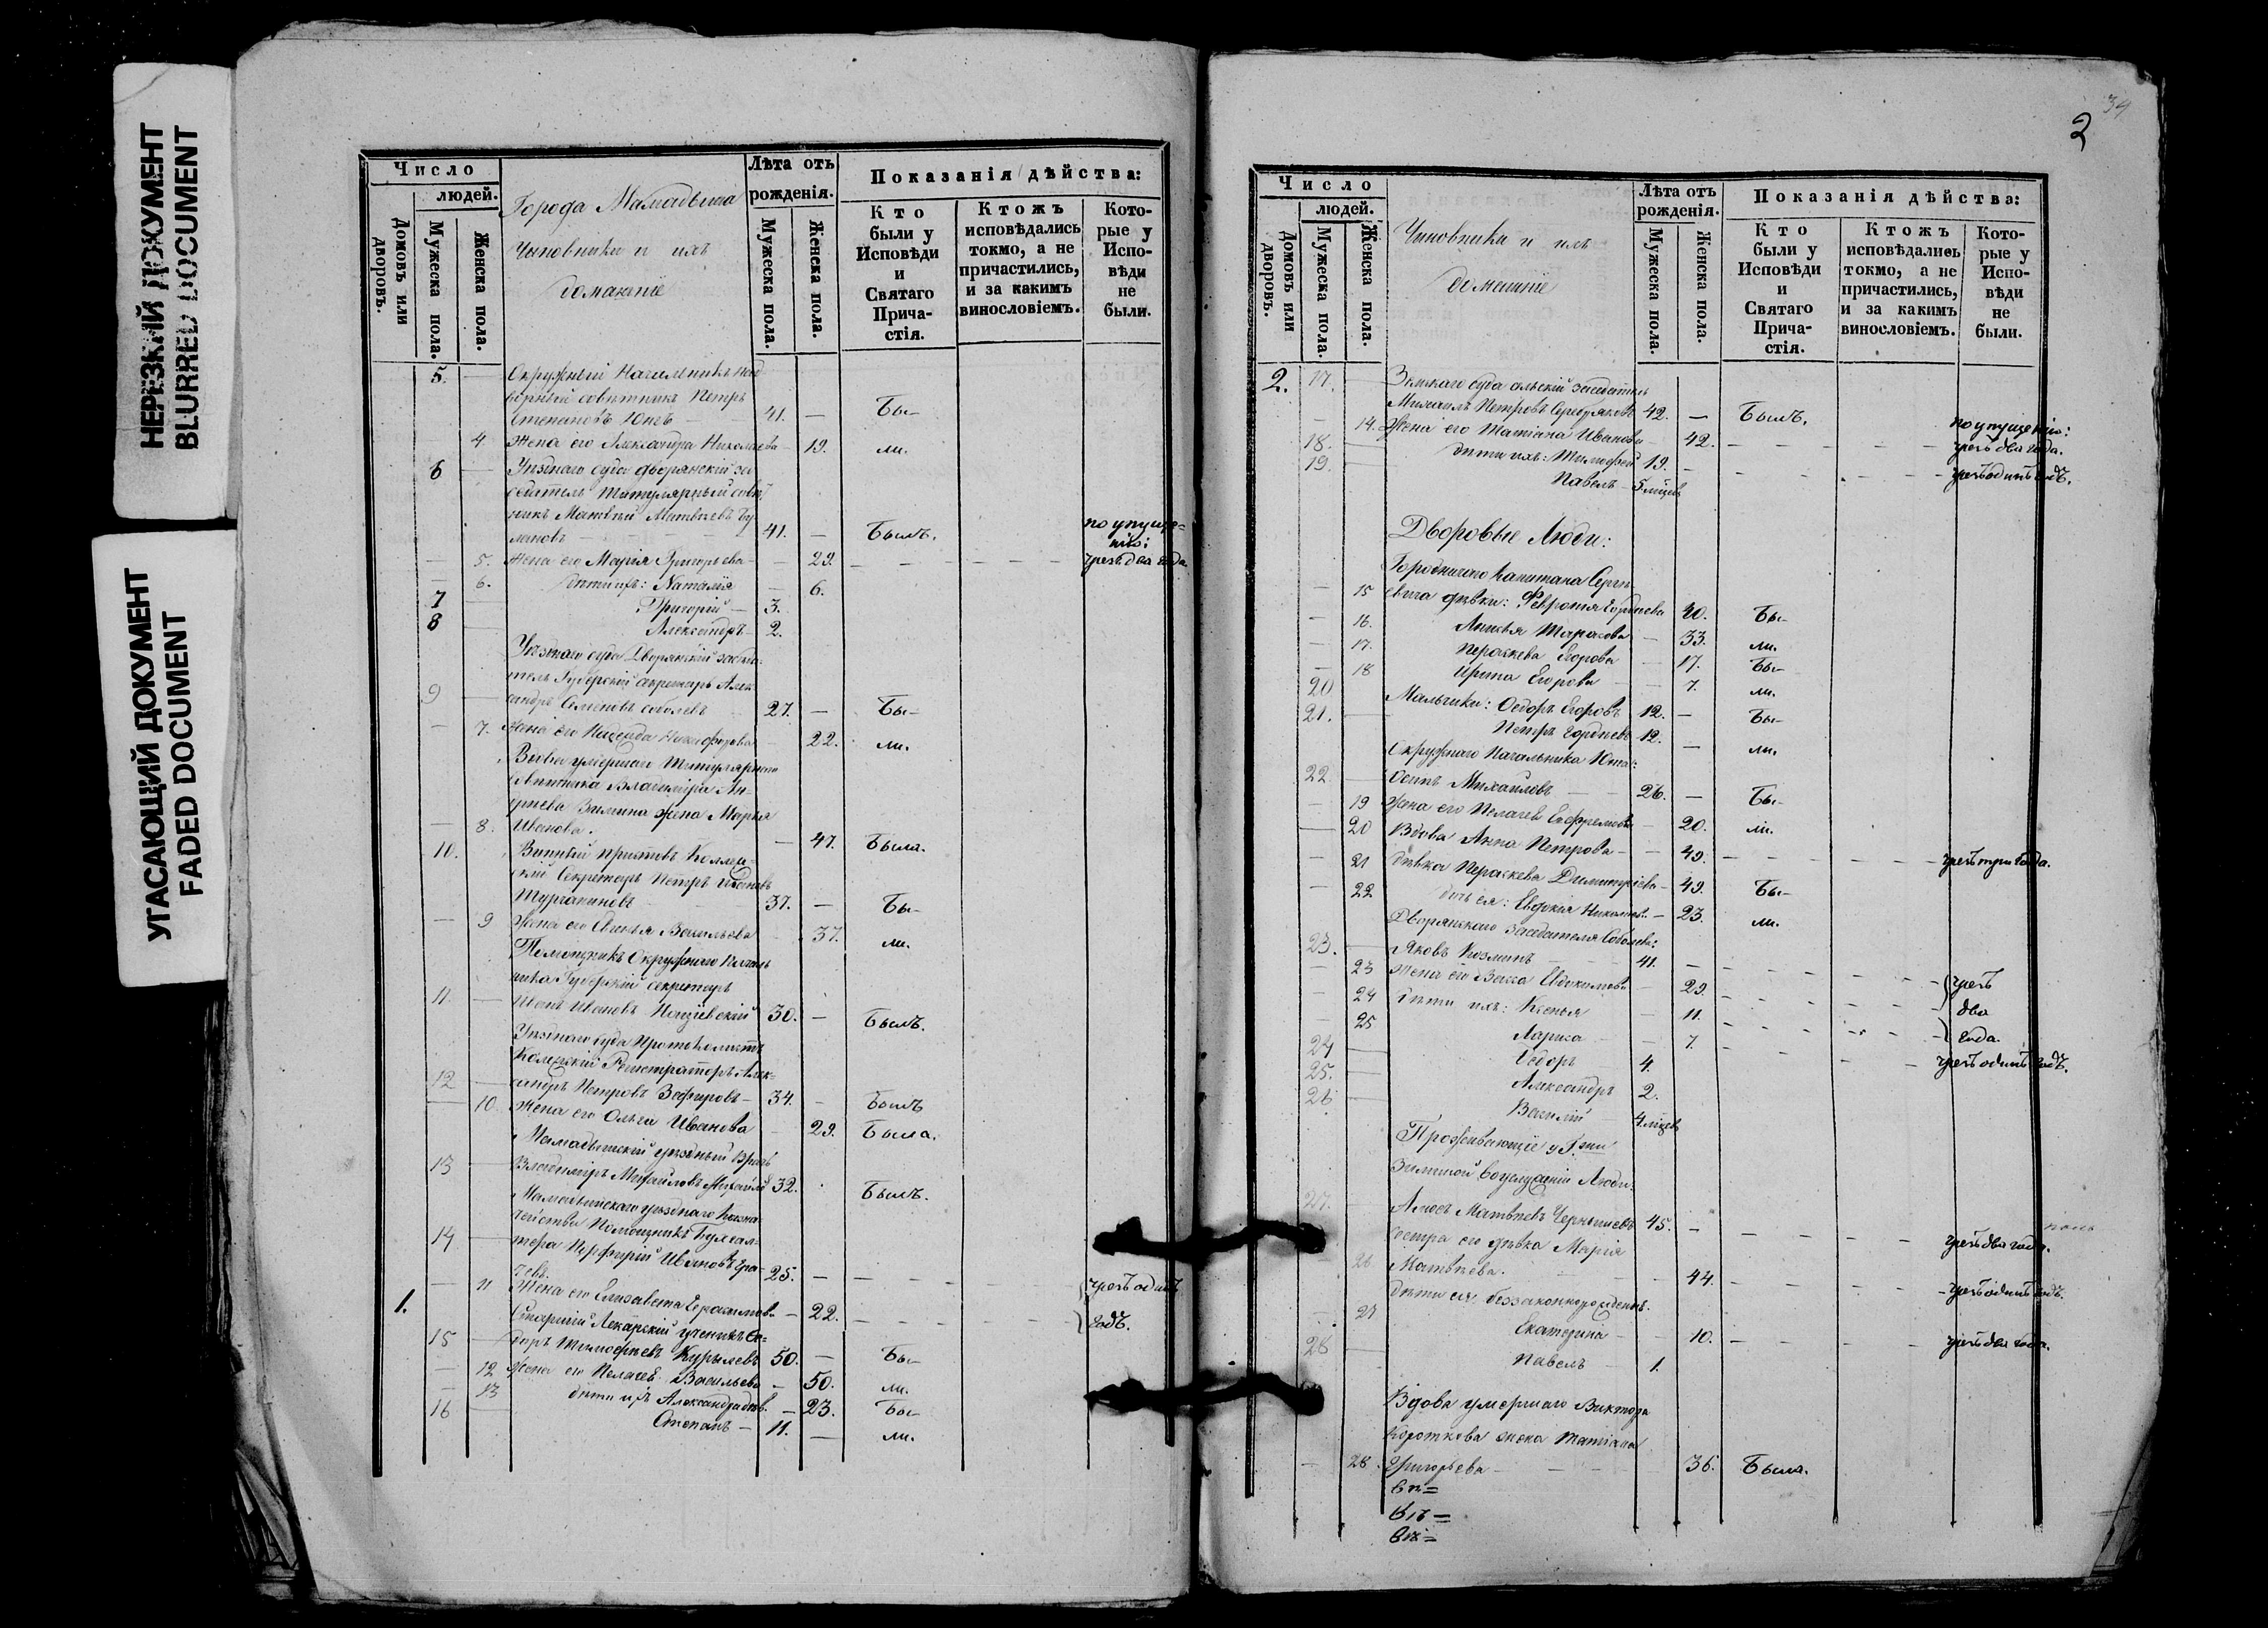 НЕРЕЗКИЙ ДОКУМЕНТ
BLURRED DOCUMENT
УГАСАЮЩИЙ ДОКУМЕНТ
FADED DOCUMENT
Число
людей.
Домовъ или дворовъ.
Мужеска пола.
Женска пола.
Города Мамадыша
Чиновники и ихъ
домашніе
Лѣта отъ рожденія.
Мужеска пола.
Женска пола.
Показанія дѣйства:
Кто были у Исповѣди и Святаго Причастія.
Ктожъ исповѣдались токмо, а не причастились, и за какимъ винословіемъ.
Которые у Исповѣди не были.
5. — Окружный Начальникъ Над
ворный совѣтникъ Петръ
Степановъ — 41. — Бы-
4 Жена его Александра Николаева — 19. ли.
6 — Уѣзднаго суда дворянскій за
седатель Титулярный совѣт
никъ Матвѣй Матвѣевъ Бу
лановъ — 41. — Былъ. по упуще-
нію:
— 5. Жена его Марія Григорьева — 29. чрезъ два года
— 6. дѣти ихъ: Наталія — 6.
7 — Григорій — 3.
8 — Александръ — 2.
Уѣзднаго суда Дворянскій засѣда
тель Губерскій секретарь Алек
9 — сандръ Семеновъ Соболевъ 27. — Бы-
— 7. Жена его Никифорова 22. ли.
Вдова умершаго Титулярнаго
Совѣтника Владиміра Ан-
дреева Зимина жена Марья
— 8. Иванова. — 47. Была.
10. Винный приставъ Коллеж-
скій Секретарь Петръ Ивановъ
37. — Бы-
— 9 Жена его Евгенья Васильева 37. ли.
Помощникъ Окружнаго Началь
ника Губерскій секретарь
11. — Иванъ Ивановъ 30. — Былъ.
Уѣзднаго суда Протоколистъ
Колежскій Регистраторъ Алек-
12 — сандръ Петровъ Зефировъ — 34. — Былъ
— 10. Жена его Ольга Иванова — 29. Была.
Мамадышскій уѣздный Врачь
13 — Владиміръ Михайловъ 32. Былъ.
Мамадышскаго уѣзднаго Казна
чейства Помощникъ Бухгал-
14 — тера Порфирій Ивановъ Гра-
чевъ. 25. — чрезъ одинъ
— 11 Жена его Елизавета Герасимова — 22. годъ.
1. Старшій Лекарскій ученикъ Ѳе-
15 — доръ Тимофеевъ Курылевъ 50. — Бы-
— 12 Жена его Пелагея Васильева — 50. ли.
— 13 дѣти ихъ Александра дѣв. — 23. Бы-
16 — Степанъ — 11. — ли.
34
2
Число
людей.
Домовъ или дворовъ.
Мужеска пола.
Женска пола.
Чиновники и ихъ
домашніе
Лѣта отъ рожденія.
Мужеска пола.
Женска пола.
Показанія дѣйства:
Кто были у Исповѣди и Святаго Причастія.
Ктожъ исповѣдались токмо, а не причастились, и за какимъ винословіемъ.
Которые у Исповѣди не были.
2. 17. — Земскаго суда сельскій заседатель
Михаилъ Петровъ Серебряковъ 42. — Былъ. по упущенію:
— 14. Жена его Татіана Иванова — 42. чрезъ два года.
18. — дѣти ихъ: Тимофей 19. — чрезъ одинъ годъ.
19. — Павелъ — 5 мѣцев
Дворовые Люди:
Городничаго Капитана Серге
— 15 евича дѣвки: Февронья Гордѣева 40. Бы-
— 16. Анисья Тарасова — 33. ли.
— 17. Параскева Егорова — 17. Бы-
— 18 Ирина Егорова — 7. ли.
20 Мальчики: Ѳедоръ Егоровъ 12. — Бы-
21. — Петръ Гордѣевъ 12. — ли.
Окружнаго Начальника
22 — Осипъ Михайловъ — 26. — Бы-
— 19 Жена его Пелагея Ефремова — 20. ли.
— 20 Вдова Анна Петрова — 49. чрезъ три года.
— 21 дѣвка Параскева Димитріева — 49. Бы-
— 22 дочь ея: Евдокія Николаева — 23. ли.
Дворянскаго Заседателя Соболева:
23. — Яковъ Козминъ — 41. — чрезъ
— 23 Жена его Васса Евдокимова 29. два
— 24 дѣти ихъ: Ксенья — 11. года.
— 25 Лариса — 7. чрезъ одинъ годъ.
24 — Ѳедоръ 4.
25. — Александръ 2.
26 — Василій 4 мѣцев
Проживающіе у Г.жи
Зиминой Люди:
27. Амосъ Матвѣевъ Чернышевъ 45. — чрезъ два года.
сестра его дѣвка Марія
— 26 Матвѣева. — 44. чрезъ одинъ годъ.
дѣти ея, беззаконнорожденн.
— 27 Екатерина — 10. чрезъ два года.
28 — Павелъ — 1.
Вдова умершаго Виктора
Короткова жена Татіана
— 28. Григорьева — 36. Была.